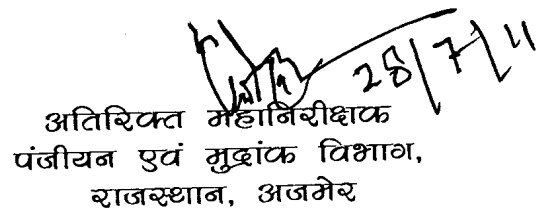 28/7/11
अतिरिक्त महानिरीक्षक
पंजीयन एवं मुद्रांक विभाग,
राजस्थान, अजमेर